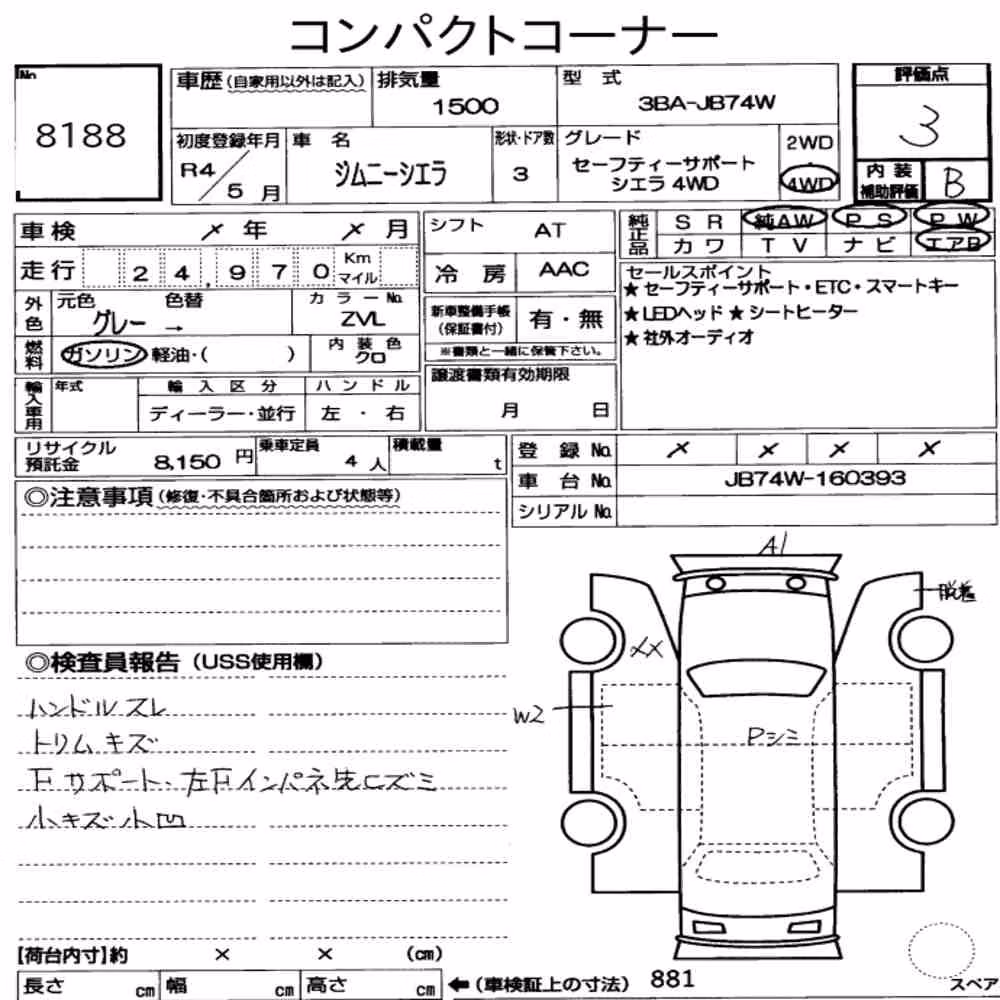 コンパクトコーナー
No. 8188
車歴(自家用以外は記入) 排気量 1500 型式 3BA-JB74W
評価点 3
初度登録年月 R4/5月 車名 ジムニーシエラ 形状・ドア数 3
グレード セーフティーサポート シエラ 4WD 2WD・4WD
内装補助評価 B
車検 ×年 ×月
シフト AT
純正品 SR 純AW PS PW
カワ TV ナビ エアB
走行 24,970 Km マイル
冷房 AAC
セールスポイント
★セーフティーサポート・ETC・スマートキー
★LEDヘッド★シートヒーター
★社外オーディオ
外色 元色 グレー → 色替 カラーNo. ZVL
新車整備手帳(保証書付) 有・無
※書類と一緒に保管下さい。
燃料 ガソリン 軽油・( ) 内装色 クロ
譲渡書類有効期限 月 日
輸入車用 年式 輸入区分 ディーラー・並行 ハンドル 左・右
リサイクル預託金 8,150円 乗車定員 4人 積載量 t
登録No. × × × ×
車台No. JB74W-160393
シリアルNo.
◎注意事項(修復・不具合箇所および状態等)
◎検査員報告(USS使用欄)
ハンドルスレ
トリムキズ
小キズ小凹
A1
XX
W2
Pシミ
【荷台内寸】約 × × (cm)
長さ cm 幅 cm 高さ cm ←(車検証上の寸法) 881
スペア